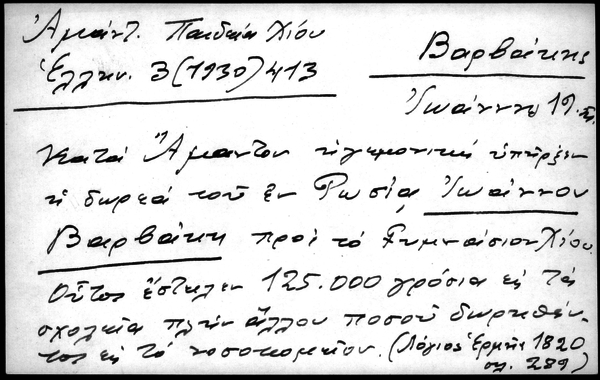 Ἀμάντ. Παιδεία Χίου
Ἑλλην. 3 (1930) 413
Βαρβάκης
Ἰωάννης 19.
Κατά Ἄμαντον ἡγεμονική ὑπῆρξεν
ἡ δωρεά τοῦ ἐν Ρωσίᾳ Ἰωάννου
Βαρβάκη πρός τό Γυμνάσιον Χίου.
Οὗτος ἔστειλεν 125.000 γρόσια εἰς τά
σχολεῖα πλήν ἄλλου ποσοῦ δωρηθέν-
τος εἰς τό νοσοκομεῖον. (Λόγιος Ἑρμῆς 1820
σελ. 289)